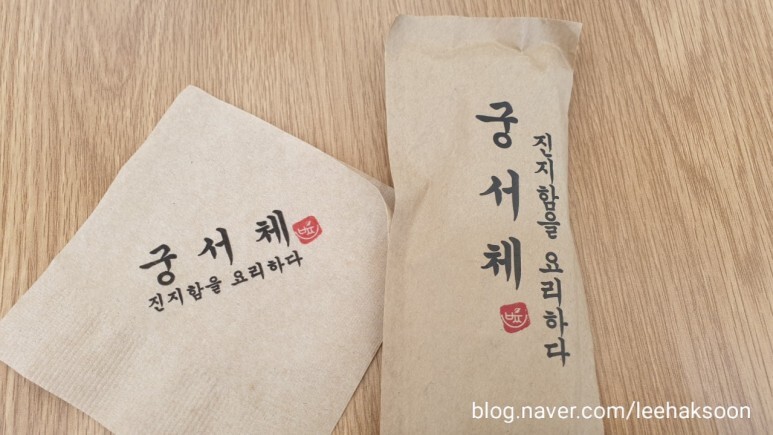 궁서체
진지함을 요리하다
궁서체
진지함을 요리하다
blog.naver.com/leehaksoon